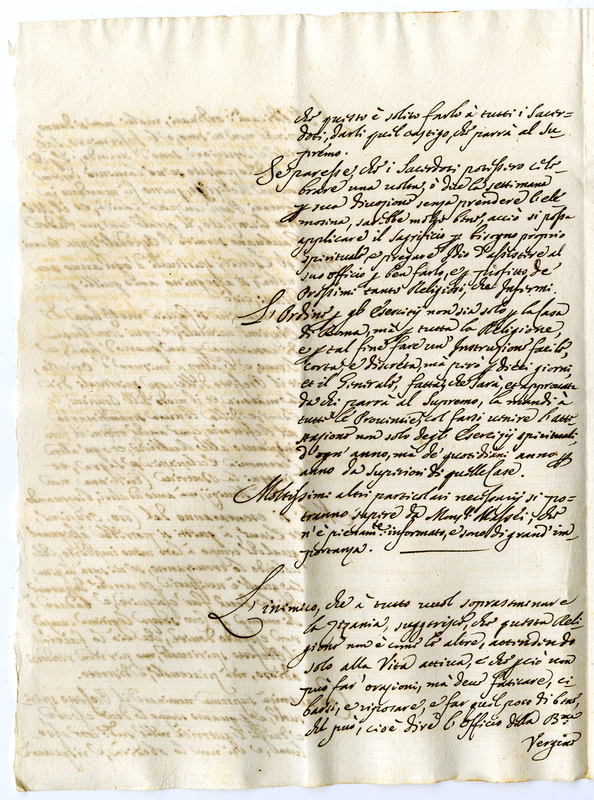 che questo è solito farlo à tutti i Sacer-
doti, darli quel castigo, che parrà al Su-
premo.
Se paresse, che i Sacerdoti potessero cele-
brare una volta, ò due la settimana
p sua divozione senza prendere l'ele
mosina, sarebbe molto bene, acciò si possa
applicare il Sagrificio p bisogno proprio
spirituale, e pregare Iddio d'assistere al
suo officio p ben farlo, e p profitto de
Prossimi tanto Religiosi, che Infermi.
L'Ordine p gl'Esercizij non sia solo p la Casa
di Roma, mà p tutta la Religione,
e p tal fine fare un' Instruzione facile,
corta, e discreta, mà però p dieci giorni,
et il Generale, fatta, che sarà, et approvata
da chi parrà al Supremo, la mandi à
tutte le Provincie, col farsi venire l'atte
stazione non solo degl'Esercizij spirituali
d'ogn' anno, mà de quotidiani anno p
anno da Superiori di quelle Case.
Moltissimi altri particolari necessarij si po-
tranno sapere da Mons.r Massei, che
n'è pienam.te informato, e sono di grand'im
portanza.
L'inimico, che à tutto vuol soprasminare
la Zizania, suggerisce, che questa Reli
gione non è come le altre, attendendo
solo alla Vita attiva, e che p ciò non
può far' orazioni, mà deve faticare, ci
barsi, e riposare, e far quel poco di bene,
che può, cioè dire l'Officio della B.ma
Vergine